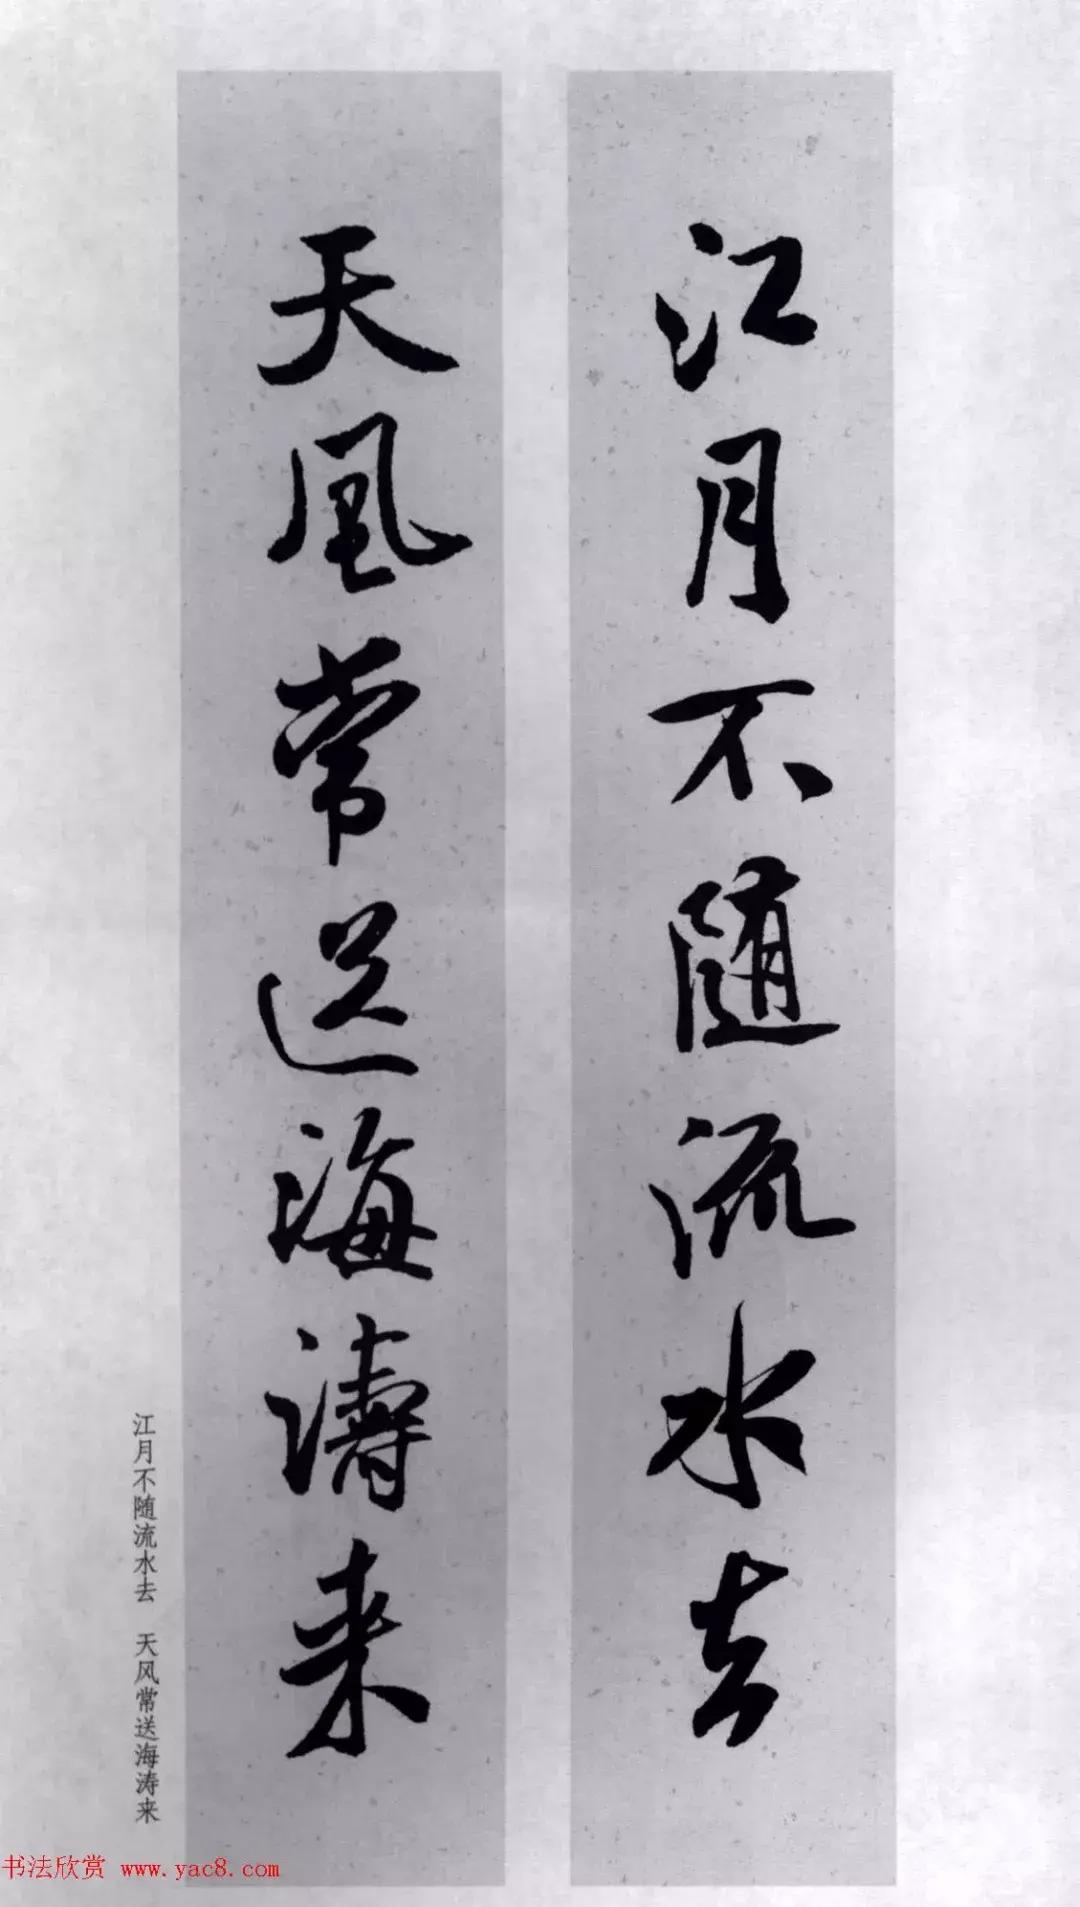 江月不随流水去
天风常送海涛来
江月不随流水去 天风常送海涛来
书法欣赏 www.yac8.com